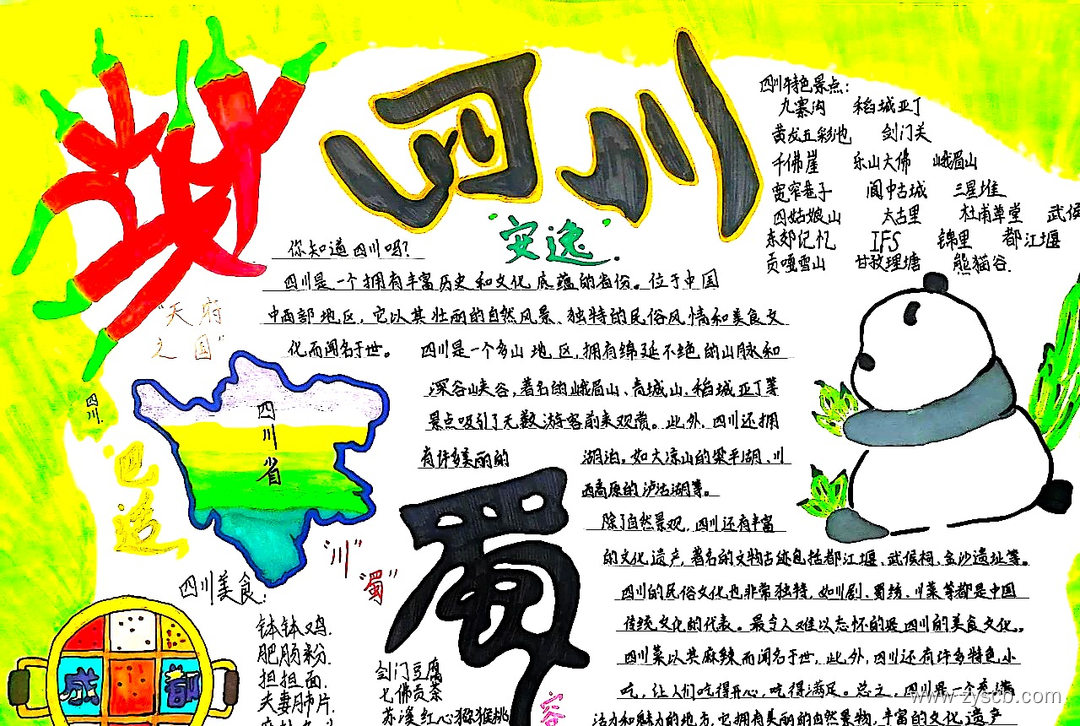 四川
“安逸”
四川特色景点：
九寨沟 稻城亚丁
黄龙五彩池 剑门关
千佛崖 乐山大佛 峨眉山
宽窄巷子 阆中古城 三星堆
四姑娘山 太古里 杜甫草堂 武侯
东郊记忆 IFS 锦里 都江堰
贡嘎雪山 甘孜理塘 熊猫谷.
你知道四川吗?
四川是一个拥有丰富历史和文化底蕴的省份。位于中国
中西部地区，它以其壮丽的自然风景、独特的民俗风情和美食文
化而闻名于世。 四川是一个多山地区,拥有绵延不绝的山脉和
深谷山峡谷,著名的峨眉山、青城山、稻城亚丁等
景点吸引了无数游客前来观赏。此外,四川还拥
有许多美丽的
湖泊。如大凉山的 湖、川
西高原的泸沽湖等。
除了自然景观,四川还有丰富
的文化遗产,著名的文物古迹包括都江堰、武侯祠、金沙遗址等。
四川的民俗文化也非常独特,如川剧、蜀绣、川菜等都是中国
传统文化的代表。最令人难以忘怀的是四川的美食文化。
四川菜以其麻辣而闻名于世,此外,四川还有许多特色小
吃,让人们吃得开心,吃得满足。总之,四川是一个充满
活力和魅力的地方,它拥有美丽的自然景物,丰富的文化遗
“天府
之国”
四川
巴适
四川省
“川”
“蜀”
蜀
四川美食:
钵钵鸡.
肥肠粉.
担担面.
夫妻肺片.
剑门豆腐
七佛贡茶
苍溪红心猕猴桃
成都
容
www.zyscb.com